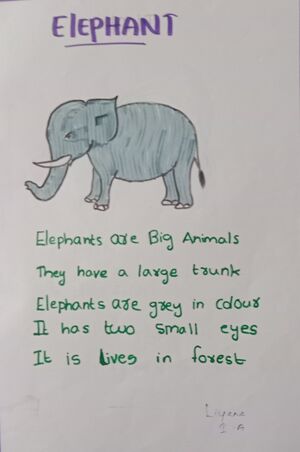 ElEPHANT
Elephants are Big Animals
They have a large trunk
Elephants are grey in colour
It has two small eyes
It is lives in forest
1 A